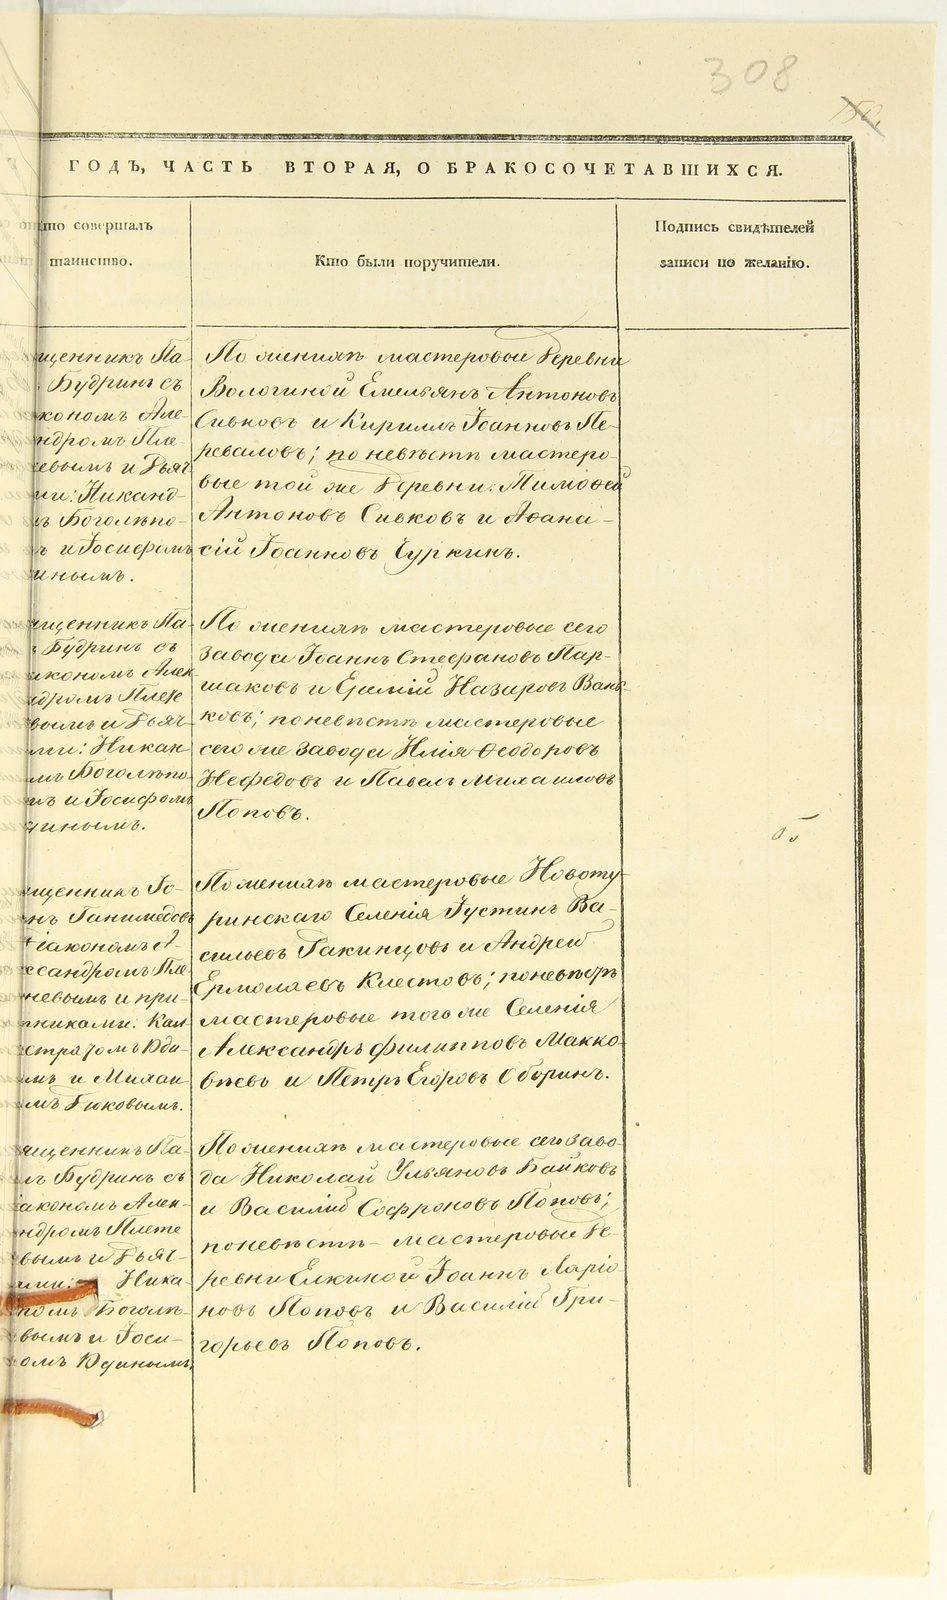 308
150.
ГОДЪ, ЧАСТЬ ВТОРАЯ, О БРАКОСОЧЕТАВШИХСЯ.
Кто совершалъ
таинство.
Кто были поручители.
Подпись свидѣтелей
записи по желанію.
щенникъ Па-
Будринъ съ
кономъ Але-
ндромъ Пле-
евымъ и Дьяч
ми: Никанд-
ъ Боголѣпо-
ъ и Іосифомъ
инымъ.
По женихѣ мастеровые Деревни
Вологиной Емельянъ Антоновъ
Сивковъ и Кириллъ Іоанновъ Пе-
реваловъ; по невѣстѣ мастеро-
вые той же Деревни: Тимоѳей
Антоновъ Сивковъ и Аѳана-
сій Іоанновъ Чуркинъ.
щенникъ Па-
Будринъ съ
иакономъ Алек
ндромъ Плет
вымъ и Дьяч-
ми: Никан-
мъ Боголѣпо-
мъ и Іосифомъ
инымъ.
По женихѣ мастеровые сего
завода Іоаннъ Стефановъ Пар-
шаковъ и Ермій Назаровъ Вань-
ковъ; по невѣстѣ мастеровые
сего же завода Илія Ѳеодоровъ
Нефедовъ и Павелъ Михаиловъ
Поповъ.
щенникъ Іо-
нъ Ганимедовъ
Діакономъ А-
ксандромъ Пле-
невымъ и при-
тниками: Кал
истратомъ Юди-
мъ и Михаи-
мъ Гюковымъ.
По женихѣ мастеровые Новоту-
ринскаго Селенія Іустинъ Ва-
сильевъ Ракинцовъ и Андрей
Ермолаевъ Клестовъ; по невѣстѣ
мастеровые того же Селенія
Александръ Филипповъ Макко-
вѣевъ и Петръ Егоровъ Оборинъ.
щенникъ Па-
лъ Будринъ съ
іакономъ Алек-
ндромъ Плете
вымъ и Дьяч-
ами: Ника-
ромъ Боголѣ-
вымъ и Іоси-
омъ Юдинымъ.
По женихѣ мастеровые сего заво-
да Николай Ульяновъ Байковъ
и Василій Софроновъ Поповъ;
по невѣстѣ - мастеровые Де-
ревни Елкиной Іоаннъ Ларіо-
новъ Поповъ и Василій Гри-
горьевъ Поповъ.
METRIKI.GASO-URAL.RU